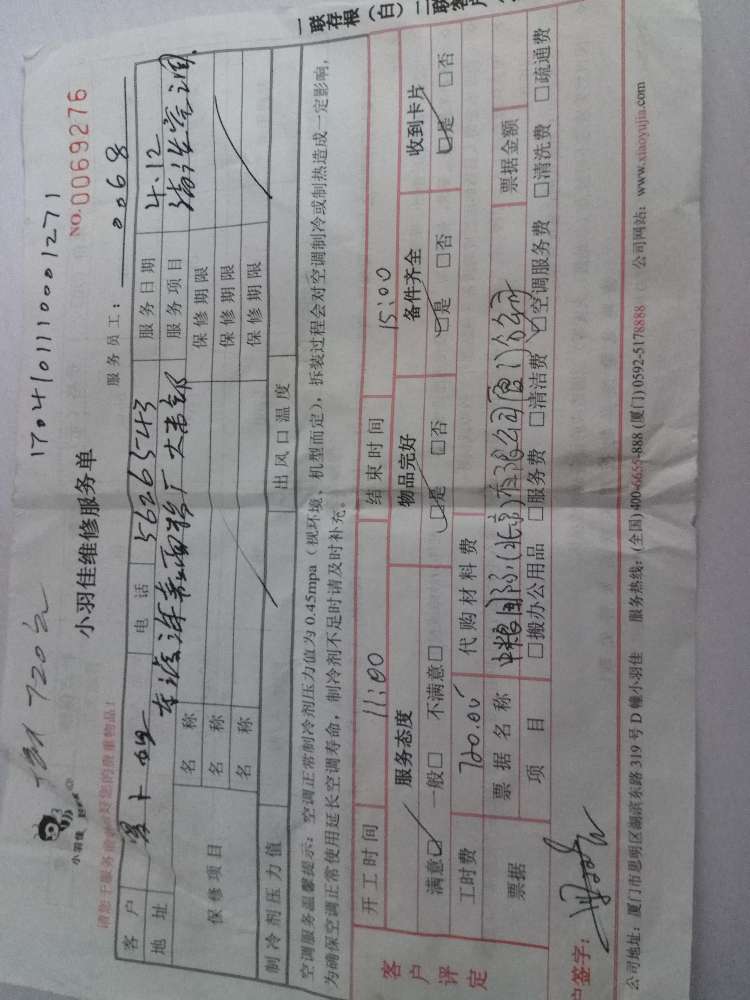 一联存根（白）二联客户
17041011110001271
NO.0069276
720元
小羽佳
小羽佳维修服务单
服务员工： 0068
请您于服务前 好您的贵重物品！
客户 电话 5626543 服务日期 4.12
地址 服务项目 清洗空调
保修项目 名称 保修期限
名称 保修期限
名称 保修期限
制冷剂压力值 出风口温度
空调服务温馨提示：空调正常制冷剂压力值为0.45mpa（视环境、机型而定），拆装过程会对空调制冷或制热造成一定影响，
为确保空调正常使用延长空调寿命，制冷剂不足时请及时补充。
开工时间 11:00 结束时间 15:00
客户评定 服务态度 物品完好 备件齐全 收到卡片
满意☑ 一般□ 不满意□ ☑是 □否 ☑是 □否 ☑是 □否
工时费 720.00 代购材料费
票据 票据名称 中粮国际(北京)有限公司厦门分公司 票据金额
项目 □搬办公用品 □服务费 □清洁费 ☑空调服务费 □清洗费 □疏通费
户签字：
公司地址：厦门市思明区湖滨东路319号D幢小羽佳 服务热线：(全国)400-6655-888 (厦门)0592-5178888 公司网站：www.xiaoyujia.com